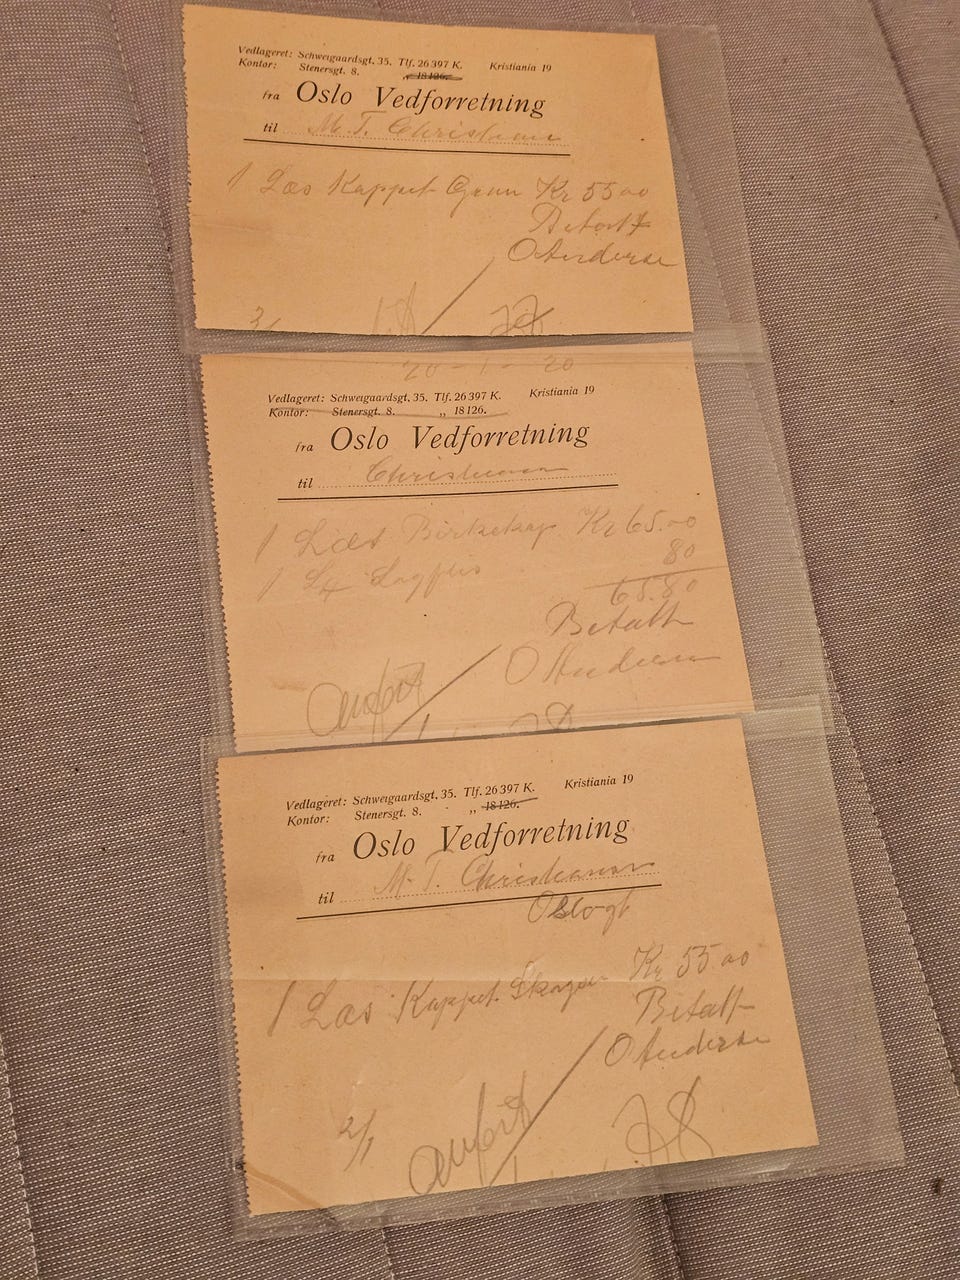 Vedlageret: Schweigaardsgt. 35. Tlf. 26 397 K. Kristiania 19
Kontor: Stenersgt. 8. 18126.
fra Oslo Vedforretning
til M. T. Christiansen
1 Læs Kappet Gran Kr 55 00
Betalt
O Andersen
20 - 1 - 20
Vedlageret: Schweigaardsgt. 35. Tlf. 26 397 K. Kristiania 19
Kontor: Stenersgt. 8. „ 18126.
fra Oslo Vedforretning
til Christiansen
1 Læs Birkekap Kr 65.00
1 80
65.80
Betalt
O Andersen
Vedlageret: Schweigaardsgt. 35. Tlf. 26 397 K. Kristiania 19
Kontor: Stenersgt. 8. „ 18126.
fra Oslo Vedforretning
til M. T. Christiansen
Oslogt
1 Læs Kappet Kr 55 00
Betalt
O Andersen
2/1